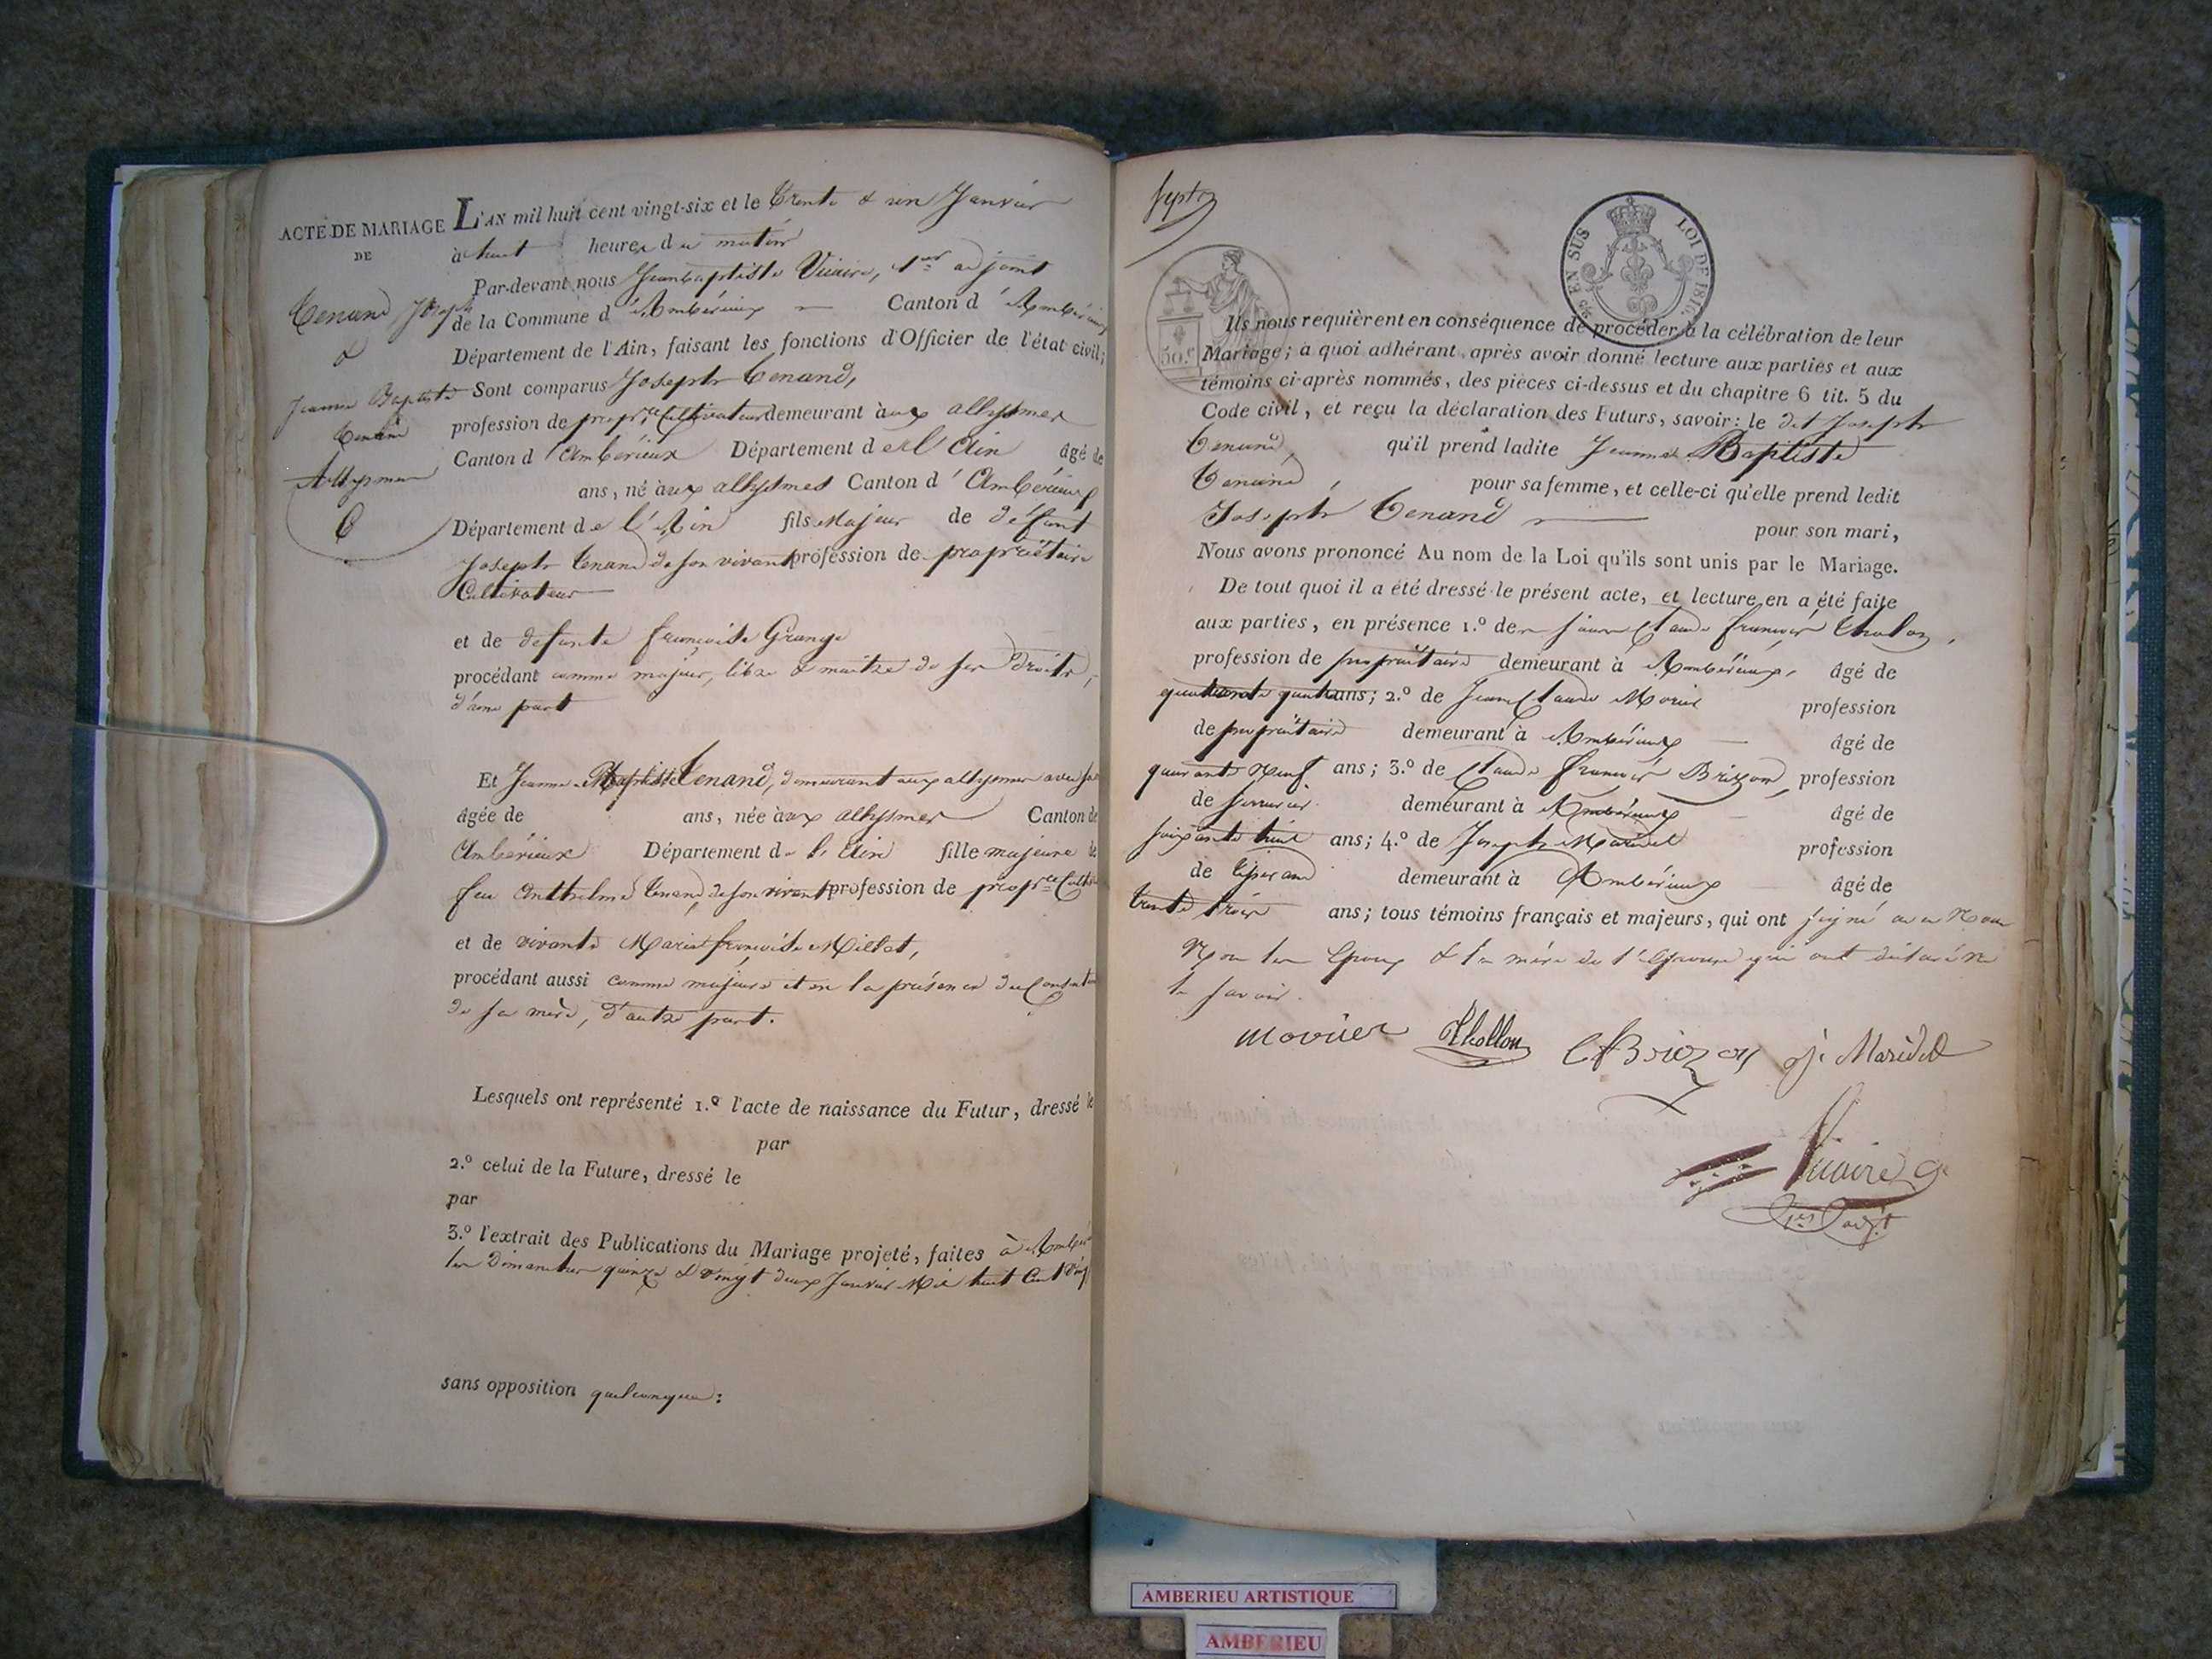 ACTE DE MARIAGE
DE
Tenand Joseph
&
Jeanne Baptiste
Tenand
Allymes
L'AN mil huit cent vingt-six et le Trente & un Janvier
à huit heures du matin
Par-devant nous Jeanbaptiste Vicaire, 1er adjoint
de la Commune d'Ambérieux Canton d'Ambérieux
Département de l'Ain, faisant les fonctions d'Officier de l'état civil;
Sont comparus Joseph Tenand,
profession de propre Cultivateur demeurant aux allysmes
Canton d'Ambérieux Département de l'Ain âgé de
ans, né aux allysmes Canton d'Ambérieux
Département de l'Ain fils Majeur de défunt
Joseph Tenand de son vivant profession de propriétaire
Cultivateur
et de defunte françoise Grange
procédant comme majeur, libre & maitre de ses droits,
d'une part
Et Jeanne Baptiste Tenand, demeurant aux allysmes avec sa
âgée de ans, née aux allysmes Canton de
Ambérieux Département de l'Ain fille majeure de
feu Anthelme Tenand, de son vivant profession de propre
et de vivante Marie françoise Millet,
procédant aussi comme majeure et en la présence du
de sa mère, d'autre part.
Lesquels ont représenté 1.º l'acte de naissance du Futur, dressé le
par
2.º celui de la Future, dressé le
par
3.º l'extrait des Publications du Mariage projeté, faites à
les Dimanches quinze & vingt deux Janvier Mil huit Cent
sans opposition quelconque:
50.c
EN SUS
LOI DE 1816
Ils nous requièrent en conséquence de procéder à la célébration de leur
Mariage; à quoi adhérant, après avoir donné lecture aux parties et aux
témoins ci-après nommés, des pièces ci-dessus et du chapitre 6 tit. 5 du
Code civil, et reçu la déclaration des Futurs, savoir: le dit Joseph
Tenand, qu'il prend ladite Jeanne Baptiste
Tenand pour sa femme, et celle-ci qu'elle prend ledit
Joseph Tenand pour son mari,
Nous avons prononcé Au nom de la Loi qu'ils sont unis par le Mariage.
De tout quoi il a été dressé le présent acte, et lecture en a été faite
aux parties, en présence 1.º de Claude françois Tholon,
profession de propriétaire demeurant à Ambérieux, âgé de
ans; 2.º de Jean Claude profession
de propriétaire demeurant à Ambérieux âgé de
quarante neuf ans; 3.º de Claude françois Brizon, profession
de serrurier demeurant à Ambérieux âgé de
soixante huit ans; 4.º de Joseph Maridet profession
de tisserand demeurant à Ambérieux âgé de
trente trois ans; tous témoins français et majeurs, qui ont signé avec Nous
Non les Epoux & la mère de l'Epouse qui ont déclaré ne
le savoir.
Movuer Thollon CfBrizon J. Maridet
Vicaire
AMBERIEU ARTISTIQUE
AMBERIEU